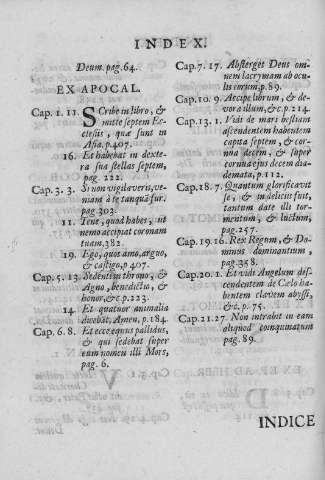 INDEX.
Deum. pag. 64.
EX APOCAL.
Cap. 1. 11. Scribe in libro, &
mitte septem Ec-
clesiis, quæ sunt in
Asia, p. 407.
16. Et habebat in dexte-
ra sua stellas septem,
pag. 222.
Cap. 3. 3. Si non vigilaveris, ve-
niam à te tanquã fur.
pag. 303.
11. Tene, quod habes, ut
nemo accipiat coronam
tuam. 382.
19. Ego, quos amo, arguo,
& castigo, p. 407.
Cap. 5. 13. Sedenti in throno, &
Agno, benedictio, &
honor, &c. p. 223.
14. Et quatuor animalia
dicebãt, Amen. p. 184.
Cap. 6. 8. Et ecce equus pallidus,
& qui sedebat super
eum nomen illi Mors,
pag. 6.
Cap. 7. 17. Absterget Deus om-
nem lacrymam ab ocu-
lis eorum. p. 89.
Cap. 10. 9. Accipe librum, & de-
vora illum, &c. p. 214.
Cap. 13. 1. Vidi de mari bestiam
ascendentem habentem
capita septem, & cor-
nua decem, & super
cornua ejus decem dia-
demata, p. 112.
Cap. 18. 7. Quantum glorificavit
se, & in deliciis fuit,
tantum date illi tor-
mentum, & luctum,
pag. 257.
Cap. 19. 16. Rex Regum, & Do-
minus dominantium,
pag. 358.
Cap. 20. 1. Et vidi Angelum des-
cendentem de Cælo ha-
bentem clavem abyssi,
&c. p. 75.
Cap. 21. 27. Non intrabit in eam
aliquod coinquinatum
pag. 89.
INDICE